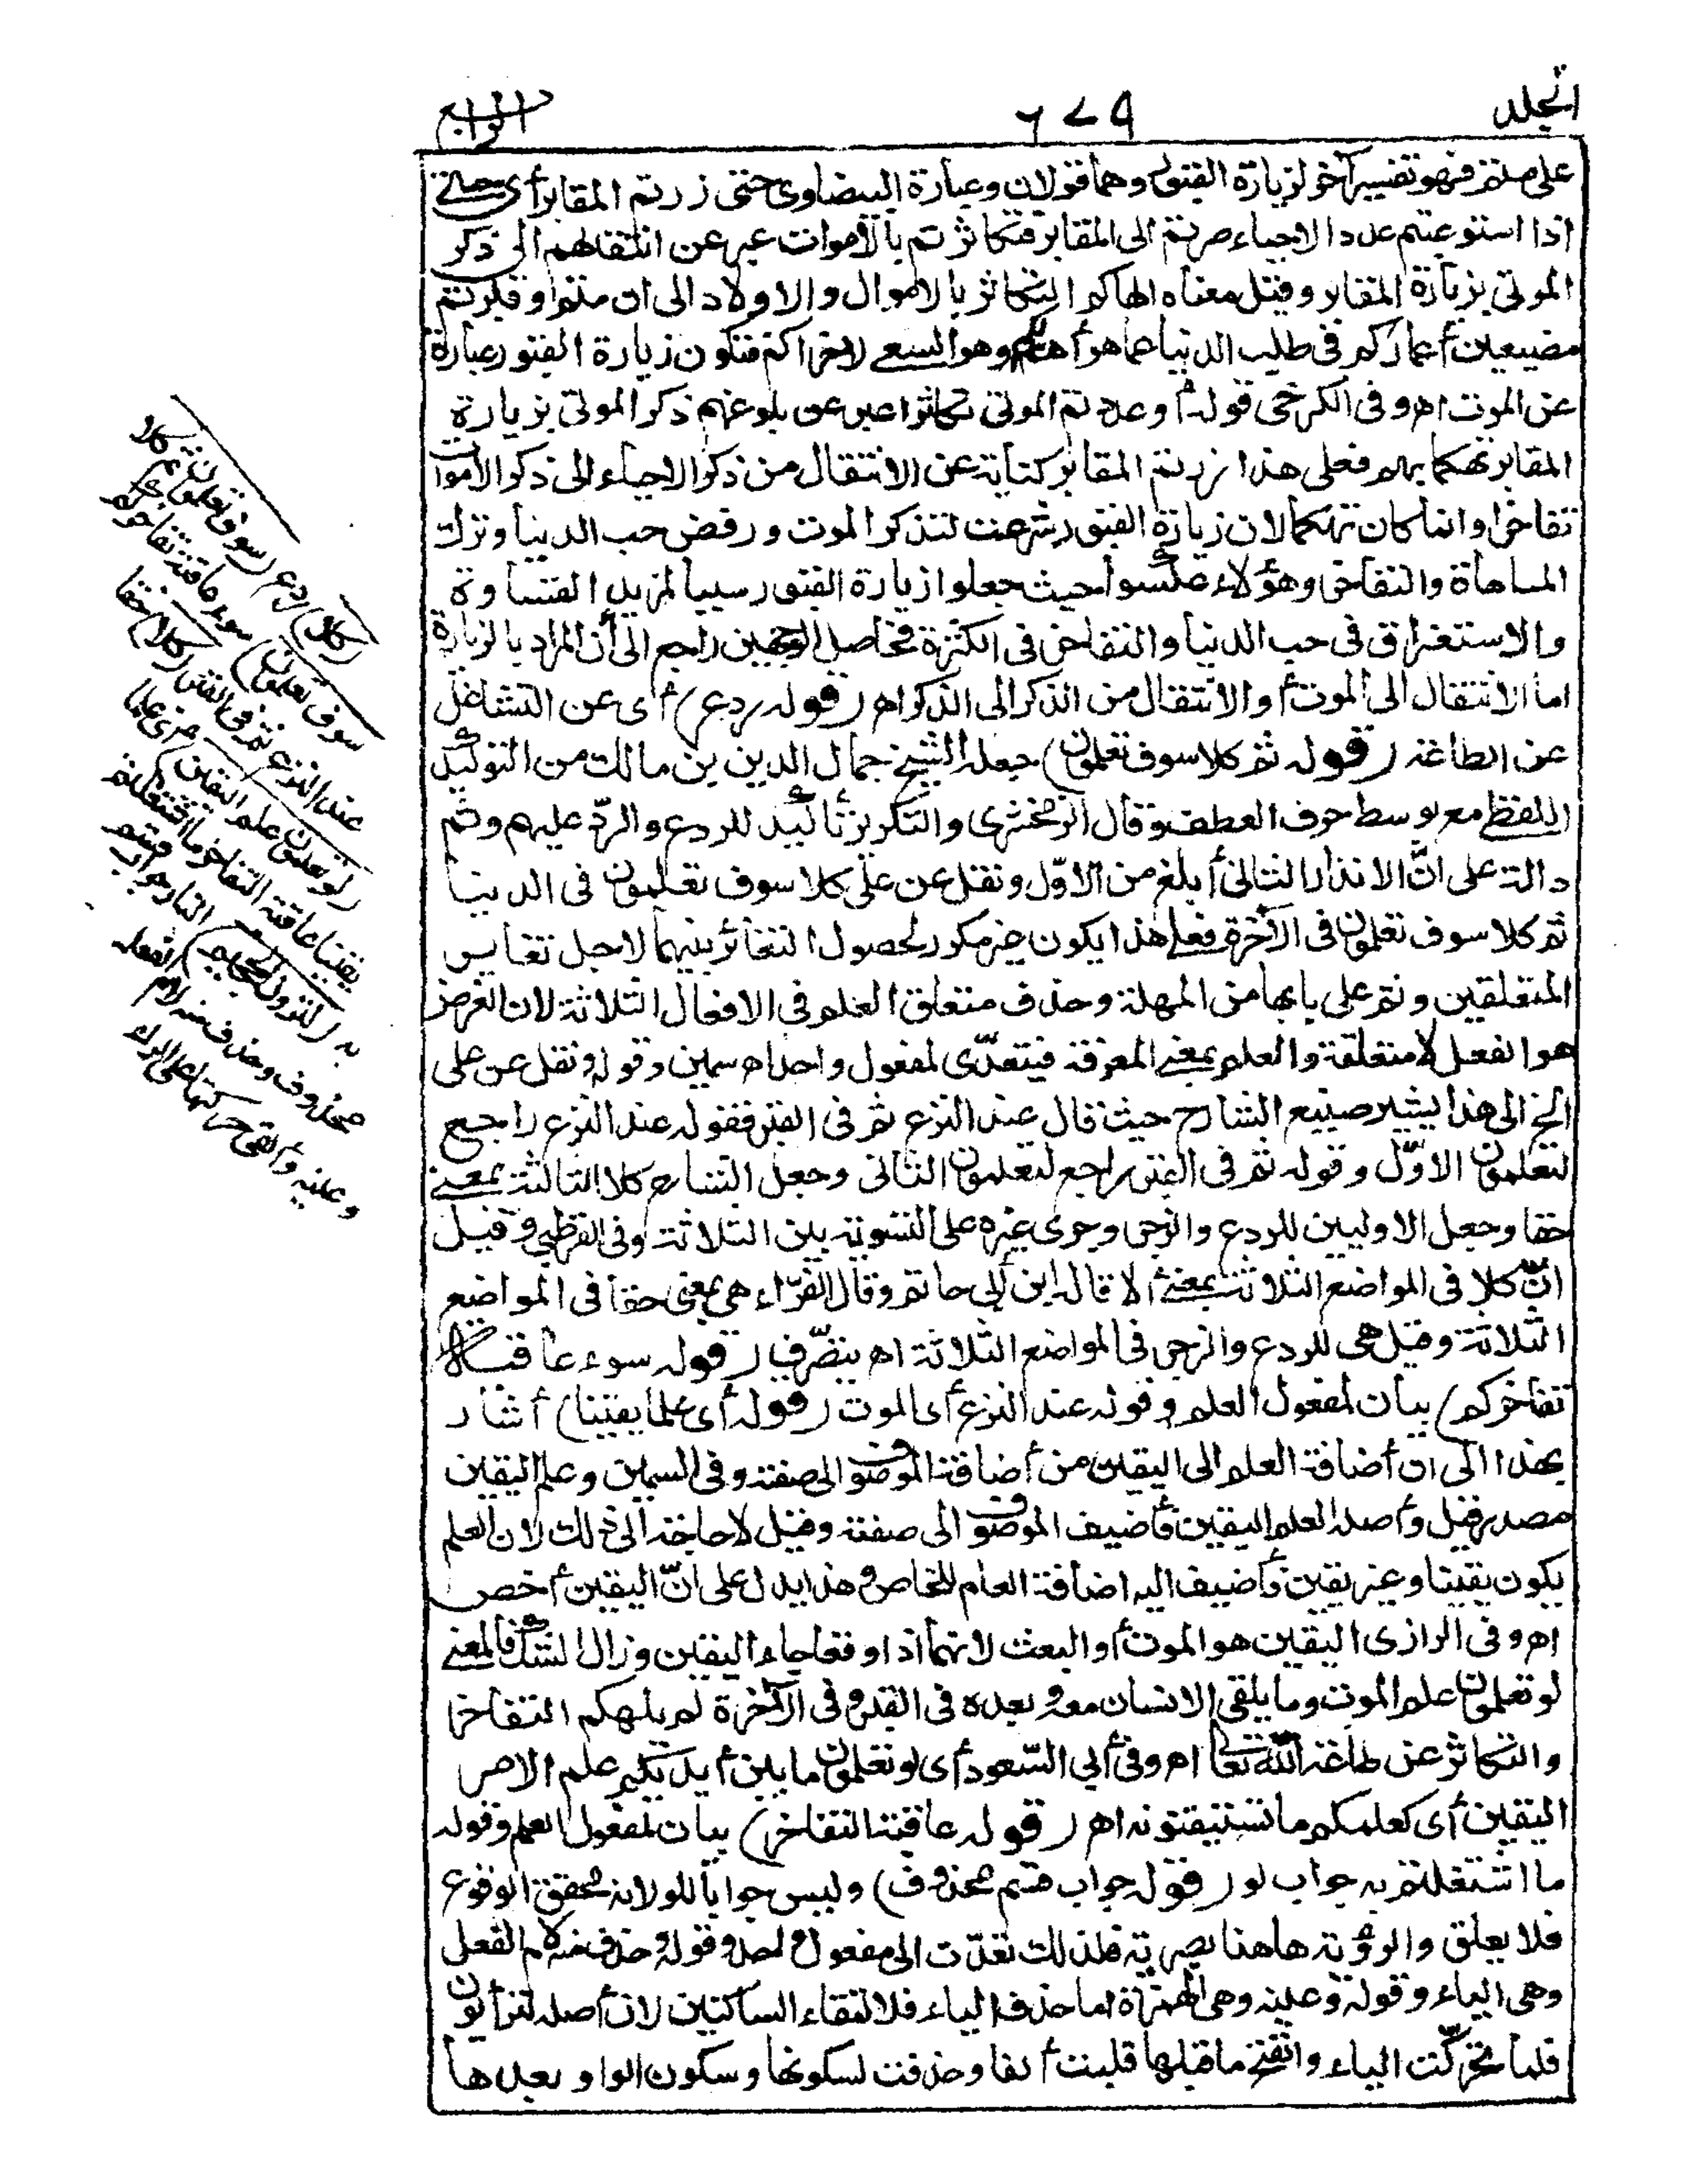 المجلد ٦٧٩ الرابع
على متم فهو تفسير آخر لزيارة القبور وهما قولان وعبارة البيضاوى حتى زرتم المقابر أى حتى
اذا استوعبتم عدد الاحياء صرتم الى المقابر فتكاثرتم بالأموات عبر عن انتقالهم الى ذكر
الموتى بزيارة المقابر وقيل معناه الهاكم التكاثر بالاموال والاولاد الى ان متم وقبرتم
مضيعين أعماركم فى طلب الدنيا عما هو أهم وهو السعى لاخراكم فتكون زيارة القبور عبارة
عن الموت اهـ وفى الكرخى قوله أو عددتم الموتى تكاثرا عبر عن بلوغهم ذكر الموتى بزيارة
المقابر تهكما بهم فعلى هذا زرتم المقابر كناية عن الانتقال من ذكر الاحياء الى ذكر الأموات
تفاخرا وانما كان تهكما لان زيارة القبور شرعت لتذكر الموت ورفض حب الدنيا وترك
المباهاة والتفاخر وهؤلاء عكسوا حيث جعلوا زيارة القبور سببا لمزيد القساوة
والاستغراق فى حب الدنيا والتفاخر فى الكثرة فحاصل الوجهين راجع الى أن المراد بالزيارة
اما الانتقال الى الموت أو الانتقال من الذكر الى الذكر اهـ (قوله ردع) أى عن التشاغل
عن الطاعة (قوله ثم كلا سوف تعلمون) جعله الشيخ جمال الدين بن مالك من التوكيد
اللفظى مع توسط حرف العطف وقال الزمخشرى والتكرير تأكيد للردع والردّ عليهم وثم
دالة على انّ الانذار الثانى أبلغ من الاوّل ونقل عن علىّ كلا سوف تعلمون فى الدنيا
ثم كلا سوف تعلمون فى الآخرة فعلى هذا يكون غير مكرر لحصول التغاير بينهما لاجل تغاير
المتعلقين وثم على بابها من المهلة وحذف متعلق العلم فى الافعال الثلاثة لان الغرض
هو الفعل لا متعلقة والعلم بمعنى المعرفة فيتعدّى لمفعول واحد اهـ سمين وقوله ونقل عن على
الخ الى هذا يشير صنيع الشارح حيث قال عند النزع ثم فى القبر فقوله عند النزع راجع
لتعلمون الاوّل وقوله ثم فى القبر راجع لتعلمون الثانى وجعل الشارح كلا الثالثة بمعنى
حقا وجعل الاوليين للردع والزجر وجرى غيره على التسوية بين الثلاثة وفى القرطبى وقيل
انّ كلا فى المواضع الثلاثة بمعنى ألا قاله ابن أبى حاتم وقال الفرّاء هى بمعنى حقا فى المواضع
الثلاثة وقيل هى للردع والزجر فى المواضع الثلاثة اهـ بتصرّف (قوله سوء عاقبة
تفاخركم) بيان لمفعول العلم وقوله عند النزع أى الموت (قوله أى علما يقينا) أشار
بهذا الى ان أضافة العلم الى اليقين من أضافة الموصوف الى صفته وفى السمين وعلم اليقين
مصدر قيل وأصله العلم اليقين فأضيف الموصوف الى صفته وقيل لا حاجة الى ذلك لان العلم
يكون يقينا وغير يقين فأضيف اليه اضافة العام للخاص وهذا يدل على انّ اليقين أخص
اهـ وفى الرازى اليقين هو الموت أو البعث لانهما اذا وقعا جاء اليقين وزال الشك فالمعنى
لو تعلمون علم الموت وما يلقى الانسان معه وبعده فى القبر وفى الآخرة لم يلهكم التفاخر
والتكاثر عن طاعة الله تعالى اهـ وفى أبى السّعود أى لو تعلمون ما بين أيديكم علم الامر
اليقين أى كعلمكم ما تستيقنونه اهـ (قوله عاقبة التفاخر) بيان لمفعول العلم وقوله
ما اشتغلتم به جواب لو (قوله جواب قسم محذوف) وليس جوابا للو لانه محقق الوقوع
فلا يعلق والرؤية هاهنا بصرية فلذلك تعدّت الى مفعول واحد وقوله وحذف منه لام الفعل
وهى الياء وقوله وعينه وهى الهمزة اما حذف الياء فلالتقاء الساكنين لان أصله لترأيون
فلما تحرّكت الياء وانفتح ما قبلها قلبت ألفا وحذفت لسكونها وسكون الواو بعدها
(كلا) ردع (سوف تعلمون ثم كلا
سوف تعلمون) سوء عاقبة تفاخركم
عند النزع ثم فى القبر (كلا) حقا
(لو تعلمون علم اليقين) أى علما
يقينا عاقبة التفاخر ما اشتغلتم
به (لترون الجحيم) النار جواب قسم
محذوف وحذف منه لام الفعل
وعينه وألقى حركتها على الراء